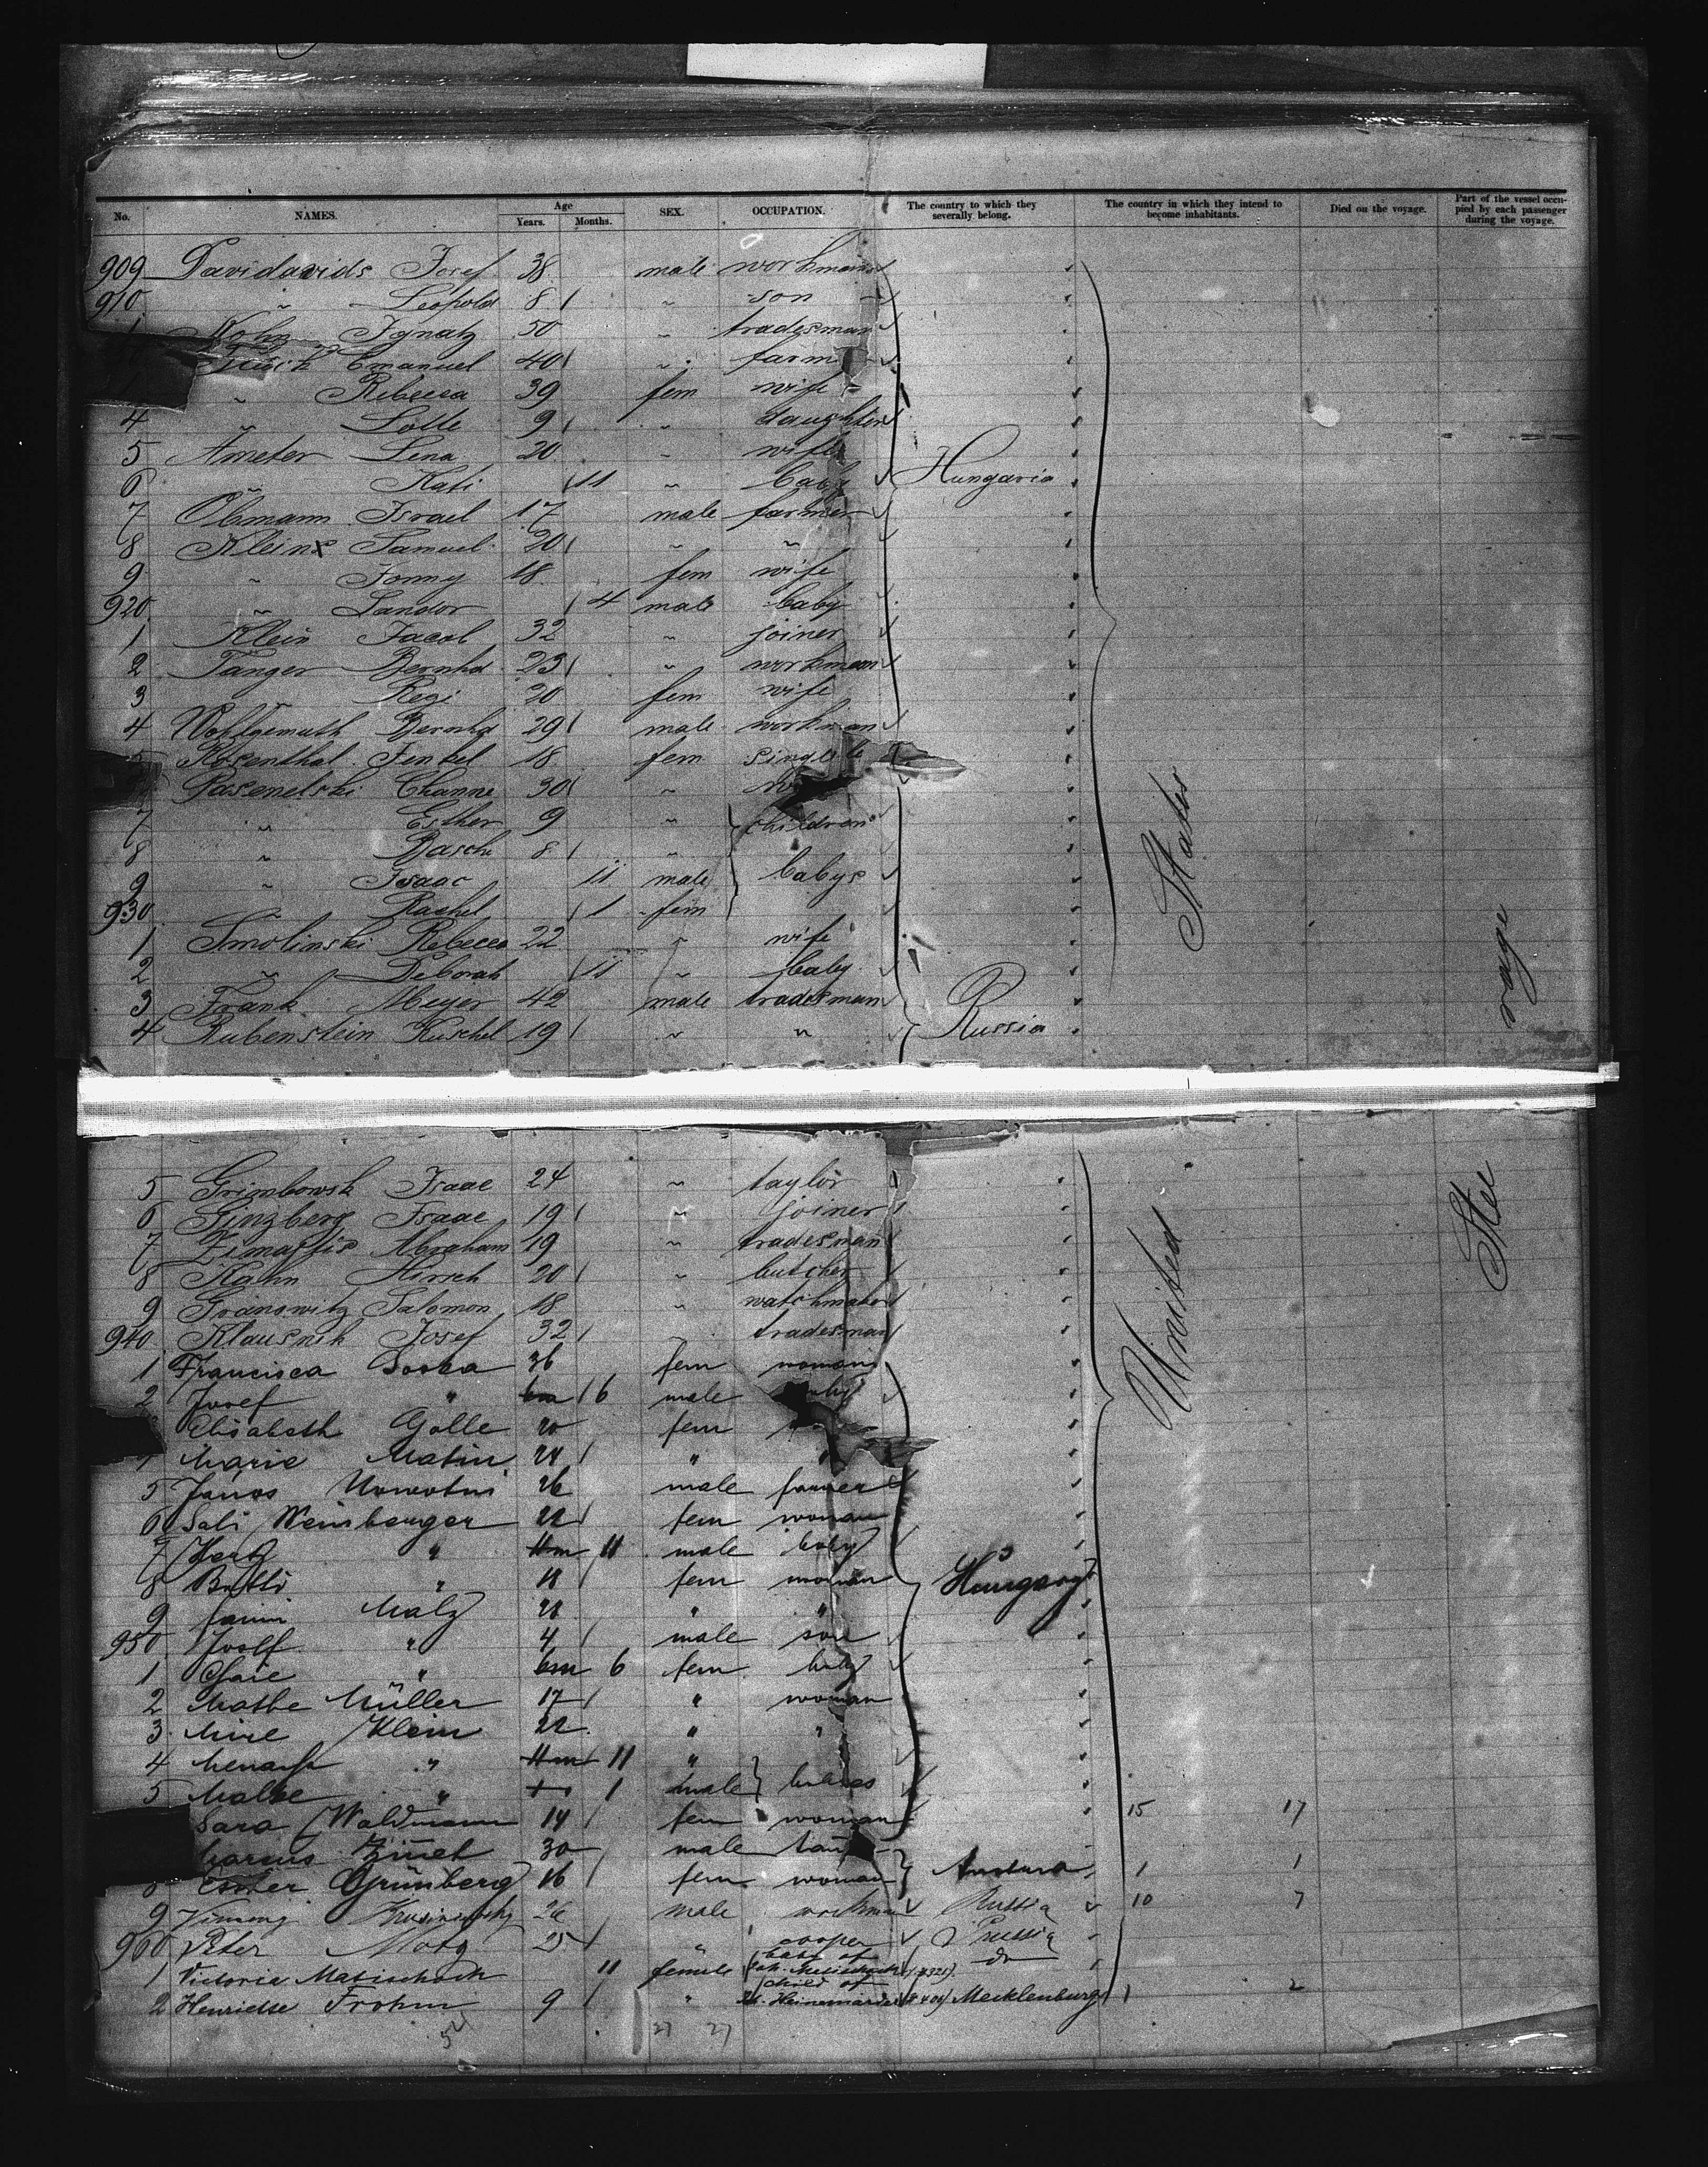 No. NAMES. Age Years. Months. SEX. OCCUPATION. The country to which they severally belong. The country in which they intend to become inhabitants. Died on the voyage. Part of the vessel occupied by each passenger during the voyage.
909 Davidavids Josef 38 male workman
910 " Leopold 8 " son
1 Ignatz 50 " tradesman
Emanuel 40 " farm
" Rebecca 39 fem wife
4 " Lotte 9 " daughter
5 Ameter Lena 20 " wife
6 " Kati 11 " baby Hungaria
7 Obmann Israel 17 male farmer
8 Klein Samuel 20 " "
9 " Fonny 18 fem wife
920 " Sandor 4 male baby
1 Klein Jacob 32 " joiner
2 Tanger Bernhd 23 " workman
3 Regi 20 fem wife
4 Bernhd 29 male workman
5 Rosenthal Fenkel 18 fem single
Pasenelski Channe 30 "
7 " Esther 9 " children
8 " Basche 8 "
9 " Isaac 11 male babys
930 " Rachel 1 fem
1 Smolinski Rebecca 22 " wife
2 " Deborah 11 " baby
3 Frank Meyer 42 male tradesman
4 Rubenstein Kuschel 19 " " Russia
States
rage
5 Grimbowsk Isaac 24 " taylor
6 Ginzberg Isaac 19 " joiner
7 Abraham 19 " tradesman
8 Kahn Hirsch 20 " butcher
9 Granowitz Salomon 18 " watchmaker
940 Klausnik Josef 32 " tradesman
United
Stee
1 Francisca 36 fem woman
2 Josef " 6m 6 male baby
Elisabeth Golle 20 fem
4 Marie Matin 24 " "
5 Janos Nowotni 26 male farmer
6 Sali Weinberger 22 fem woman
7 Hertz " 11m 11 male baby
8 Betti " 18 fem woman Hungary
9 Fanni Malz 28 " "
950 Josef " 4 male son
1 " 6m 6 fem baby
2 Müller 17 " woman
3 Klein 22 " "
4 " 11m 11 "
5 Malke " 1 male babies
Sara Waldmann 14 fem woman 15 17
Marcus 30 male
8 Esther Grünberg 16 fem woman Austria 1 1
9 26 male workman Russia 10 7
960 Peter Motz 25 " cooper Prussia
1 Victoria Matischock 11 female baby of Matischock (#321) do
2 Henriette Frohm 9 " child of Heinemander (#401) Mecklenburg 1 2
27 27